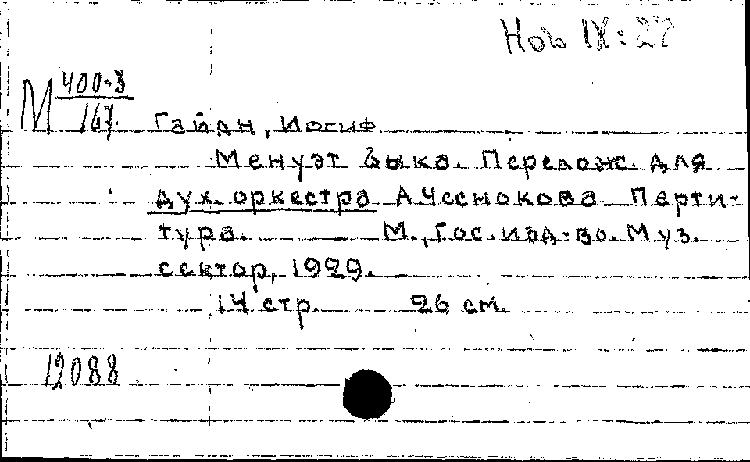 Ноь IX: 27
М 400-3
167.
Гайдн, Иосиф
Менуэт быка. Перелож. для
дух. оркестра А.Чеснокова Парти-
тура. М., Гос. изд-во. Муз.
сектор, 1929.
14 стр. 26 см.
12088